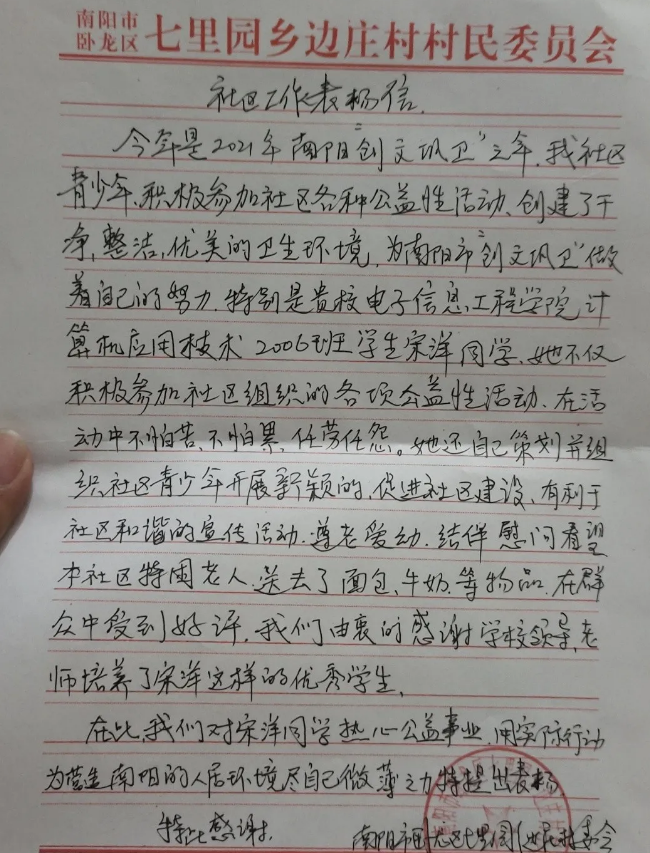 南阳市
卧龙区 七里园乡边庄村村民委员会
社区工作表扬信.
今年是2021年南阳"创文巩卫"之年.我社区
青少年、积极参加社区各种公益性活动、创建了干
净,整洁,优美的卫生环境,为南阳市"创文巩卫"做
着自己的努力.特别是贵校电子信息工程学院计
算机应用技术2006班学生宋洋同学.她不仅
积极参加社区组织的各项公益性活动、在活
动中不怕苦、不怕累,任劳任怨。她还自己策划并组
织社区青少年开展新颖的,促进社区建设、有利于
社区和谐的宣传活动.尊老爱幼.结伴慰问看望
本社区特困老人.送去了面包、牛奶.等物品.在群
众中受到好评.我们由衷的感谢学校领导,老
师培养了宋洋这样的优秀学生.
在此,我们对宋洋同学热心公益事业 用实际行动
为营造南阳的人居环境尽自己微薄之力特提出表扬
特此感谢.
南阳市卧龙区七里园边庄村委会